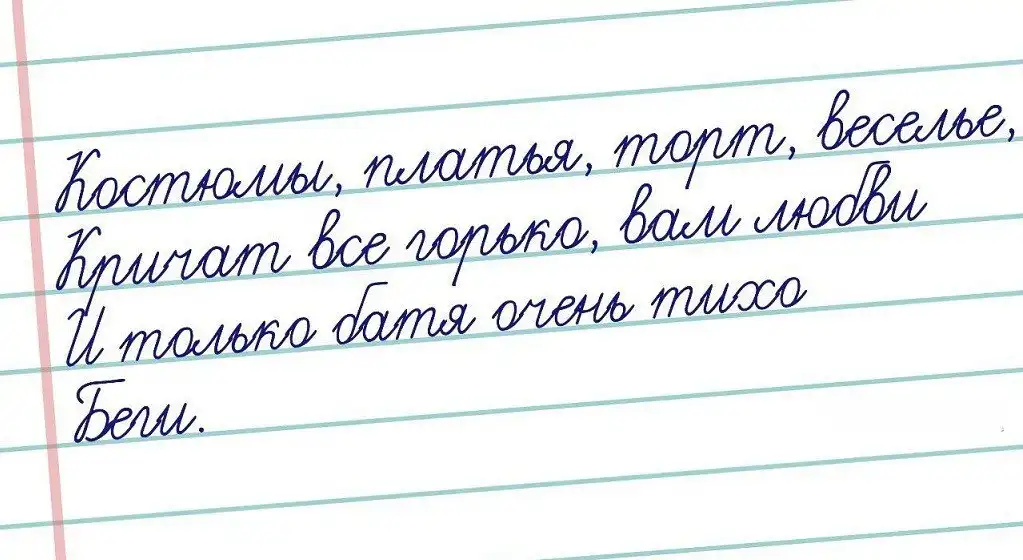 Костюмы, платья, торт, веселье,
Кричат все горько, вам любви
И только батя очень тихо
Беги.